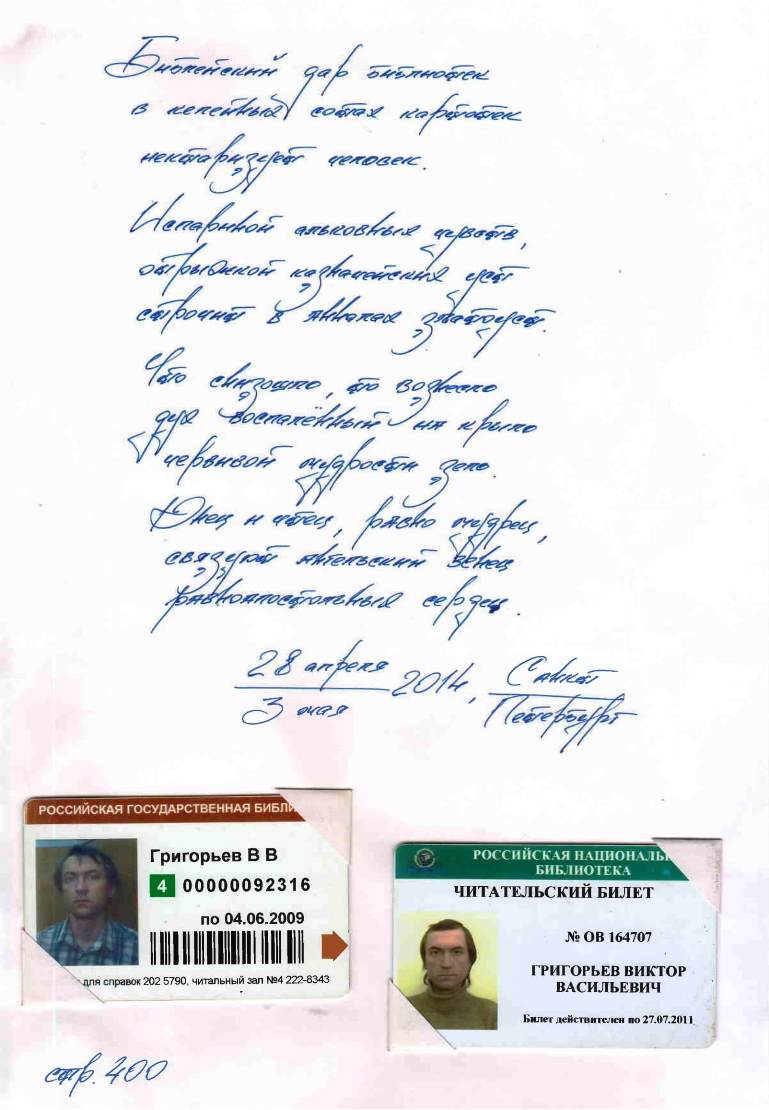 Библейский дар библиотек
в келейных сотах картотек
нектаризует человек.
Испариной альковных чувств,
отрыжкой казначейских уст
строчит в анналах златоуст.
Что снизошло, то вознесло
дух воспалённый на крыло
червивой мудрости зело.
Юнец и чтец, равно мудрец,
связуют ангельский венец
равноапостольных сердец.
28 апреля
3 мая
2014,
Санкт
Петербург
РОССИЙСКАЯ ГОСУДАРСТВЕННАЯ БИБЛИ
Григорьев В В
4 00000092316
по 04.06.2009
для справок 202 5790, читальный зал №4 222-8343
РОССИЙСКАЯ НАЦИОНАЛЬ
БИБЛИОТЕКА
ЧИТАТЕЛЬСКИЙ БИЛЕТ
№ ОВ 164707
ГРИГОРЬЕВ ВИКТОР
ВАСИЛЬЕВИЧ
Билет действителен по 27.07.2011
стр. 400